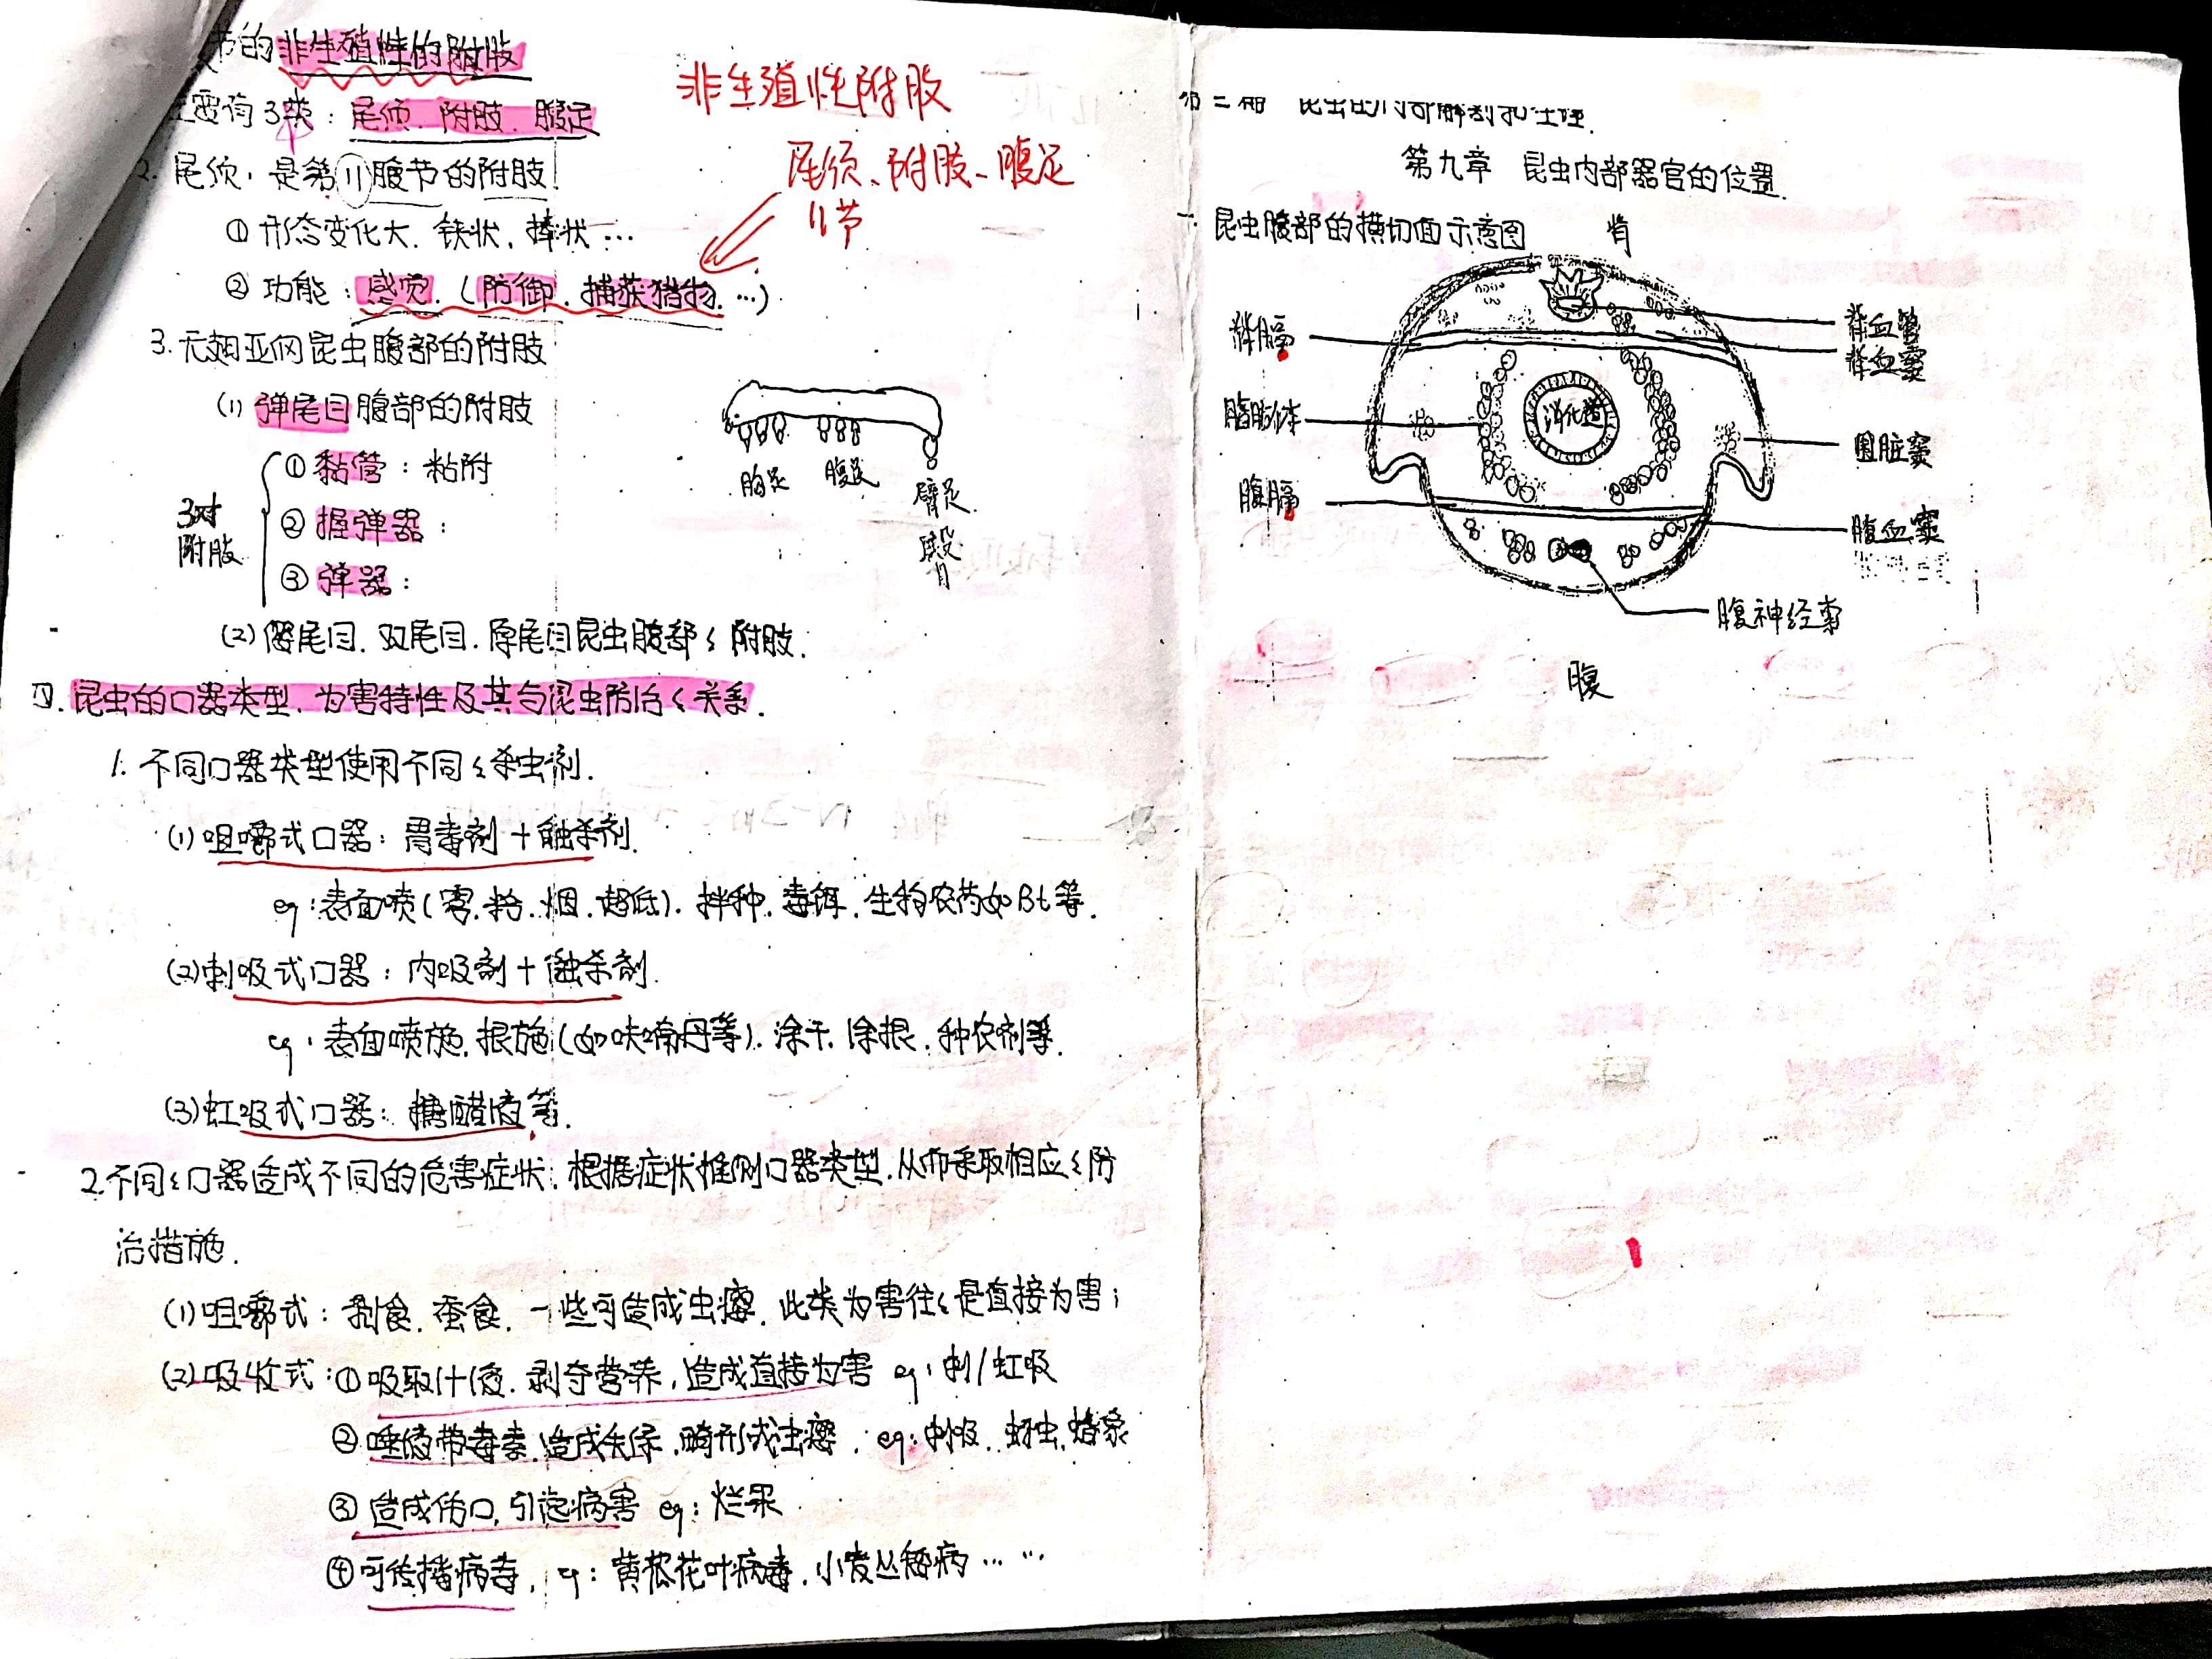 节的非生殖性的附肢
主要有3类：尾须、附肢、腹足
2. 尾须：是第11腹节的附肢！
① 形态变化大，铗状，棒状…
② 功能：感觉．（防御．捕获猎物…）
非生殖性附肢
尾须、附肢、腹足
11节
3. 无翅亚纲昆虫腹部的附肢
(1) 弹尾目腹部的附肢
3对附肢
① 黏管：粘附
② 握弹器：
③ 弹器：
胸足
腹足
臀足
(2) 缨尾目．双尾目．原尾目昆虫腹部々附肢．
四．昆虫的口器类型，为害特性及其与昆虫防治々关系．
1. 不同口器类型使用不同々杀虫剂．
(1) 咀嚼式口器：胃毒剂＋触杀剂．
eg：表面喷（雾．粉．烟．超低）．拌种．毒饵．生物农药如Bt等．
(2) 刺吸式口器：内吸剂＋触杀剂．
eg：表面喷施．根施（如呋喃丹等）．涂干．涂根．种衣剂等．
(3) 虹吸式口器：糖醋液等．
2. 不同々口器造成不同的危害症状；根据症状推侧口器类型．从而采取相应々防
治措施．
(1) 咀嚼式：剥食．蚕食．一些可造成虫瘿．此类为害往々是直接为害；
(2) 吸收式：① 吸取汁液．剥夺营养，造成直接为害 eg：刺/虹吸
② 唾液带毒素．造成失绿，畸形或虫瘿．eg：刺吸．蚜虫．蝽象
③ 造成伤口，引起病害 eg：烂果
④ 可传播病毒，eg：黄瓜花叶病毒．小麦丛矮病……
第九章 昆虫内部器官的位置．
一．昆虫腹部的横切面示意图
背
背膈
背血管
背血窦
脂肪体
消化道
围脏窦
腹膈
腹血窦
腹神经索
腹